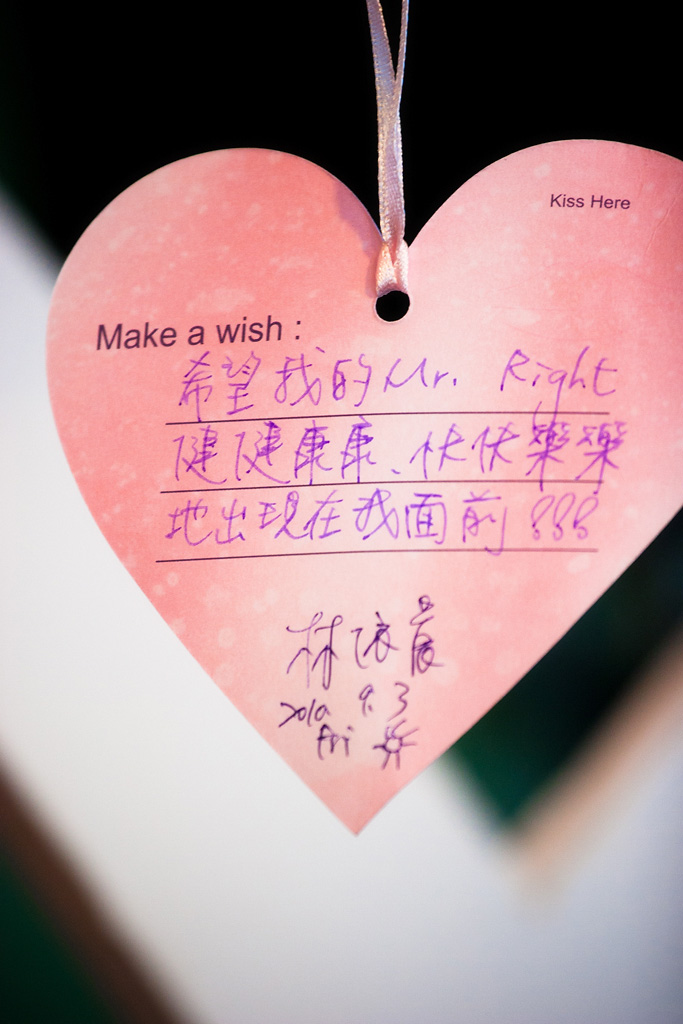 Kiss Here
Make a wish :
希望我的 Mr. Right
健健康康、快快樂樂
地出現在我面前 !!!
林依晨
2010 9.3
Fri